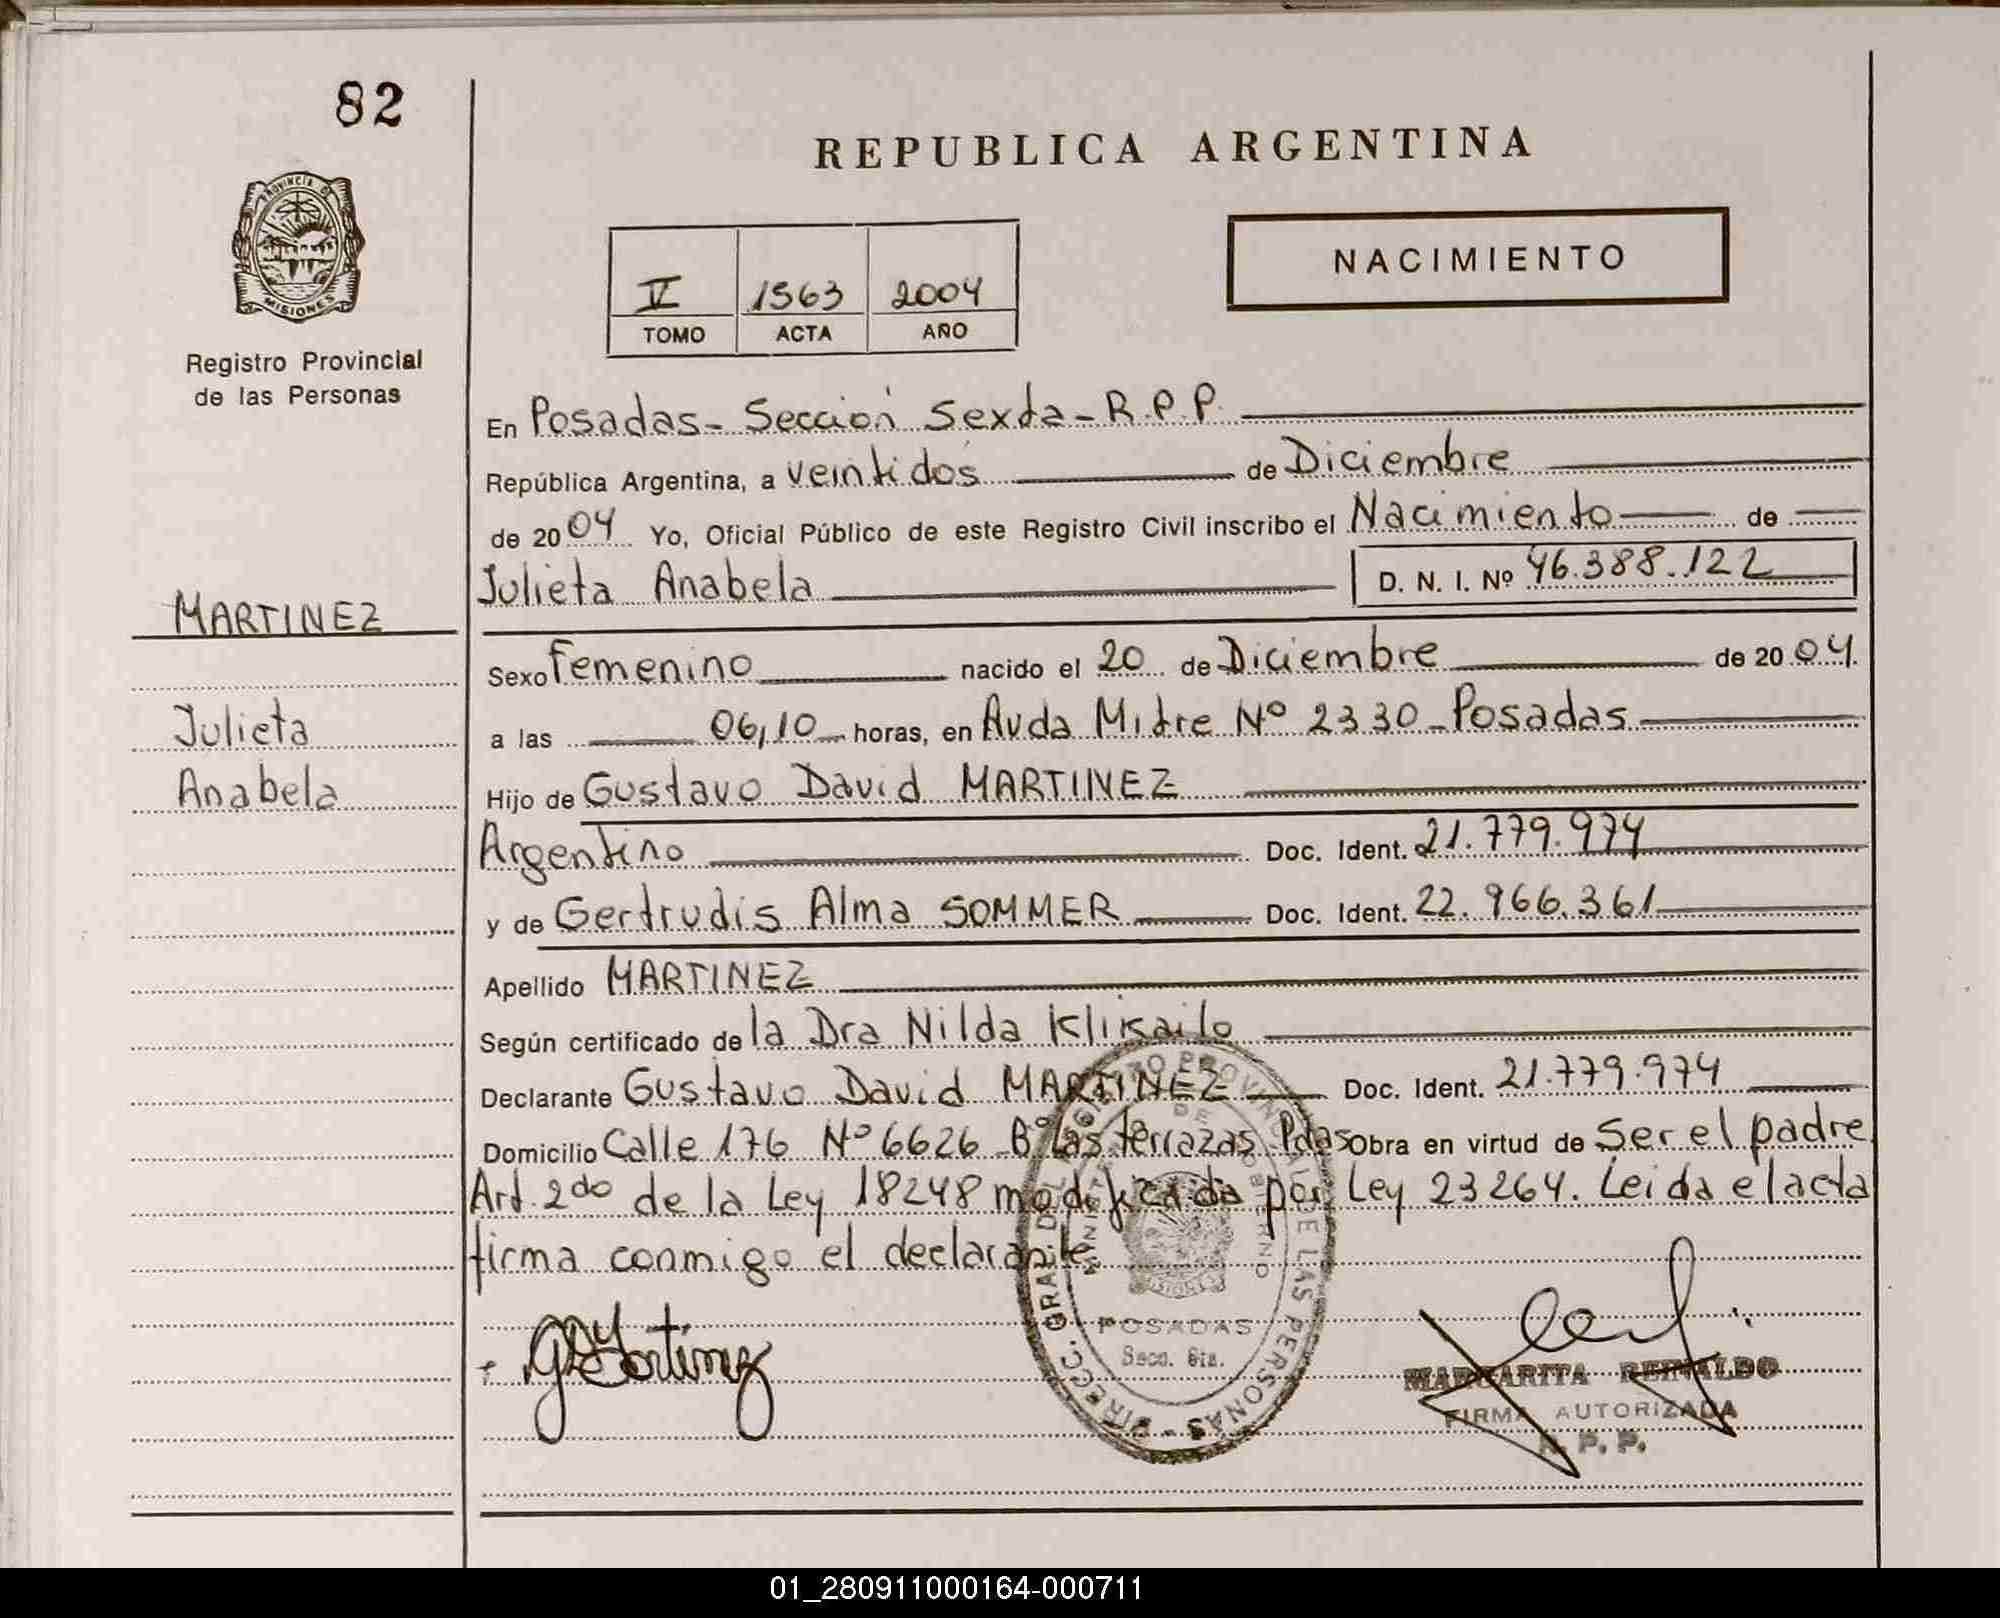 82
REPUBLICA ARGENTINA
PROVINCIA DE
MISIONES
Registro Provincial
de las Personas
NACIMIENTO
V 1563 2004
TOMO ACTA AÑO
En Posadas - Sección Sexta - R.P.P.
República Argentina, a veintidos de Diciembre
de 2004 Yo, Oficial Público de este Registro Civil inscribo el Nacimiento de
Julieta Anabela D. N. I. Nº 46.388.122
MARTINEZ
Sexo Femenino nacido el 20 de Diciembre de 2004.
Julieta
a las 06,10 horas, en Avda Mitre Nº 2330 - Posadas
Anabela
Hijo de Gustavo David MARTINEZ
Argentino Doc. Ident. 21.779.974
y de Gertrudis Alma SOMMER Doc. Ident. 22.966.361
Apellido MARTINEZ
Según certificado de la Dra Nilda Klikailo
Declarante Gustavo David MARTINEZ Doc. Ident. 21.779.974
Domicilio Calle 176 Nº 6626 - Bº Las terrazas - Pdas Obra en virtud de Ser el padre
Art. 2do de la Ley 18248 modificada por Ley 23264. Leida el acta
firma conmigo el declarante
DIRECC. GRAL. DEL REGISTRO PROVINCIAL DE LAS PERSONAS
MINISTERIO DE GOBIERNO
POSADAS
Secc. 6ta.
GDMartinez
MARGARITA REINALDO
FIRMA AUTORIZADA
R. P. P.
01_280911000164-000711